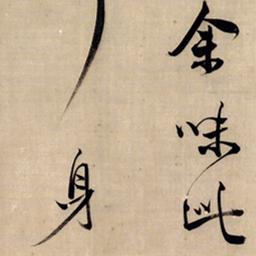 余味此
身